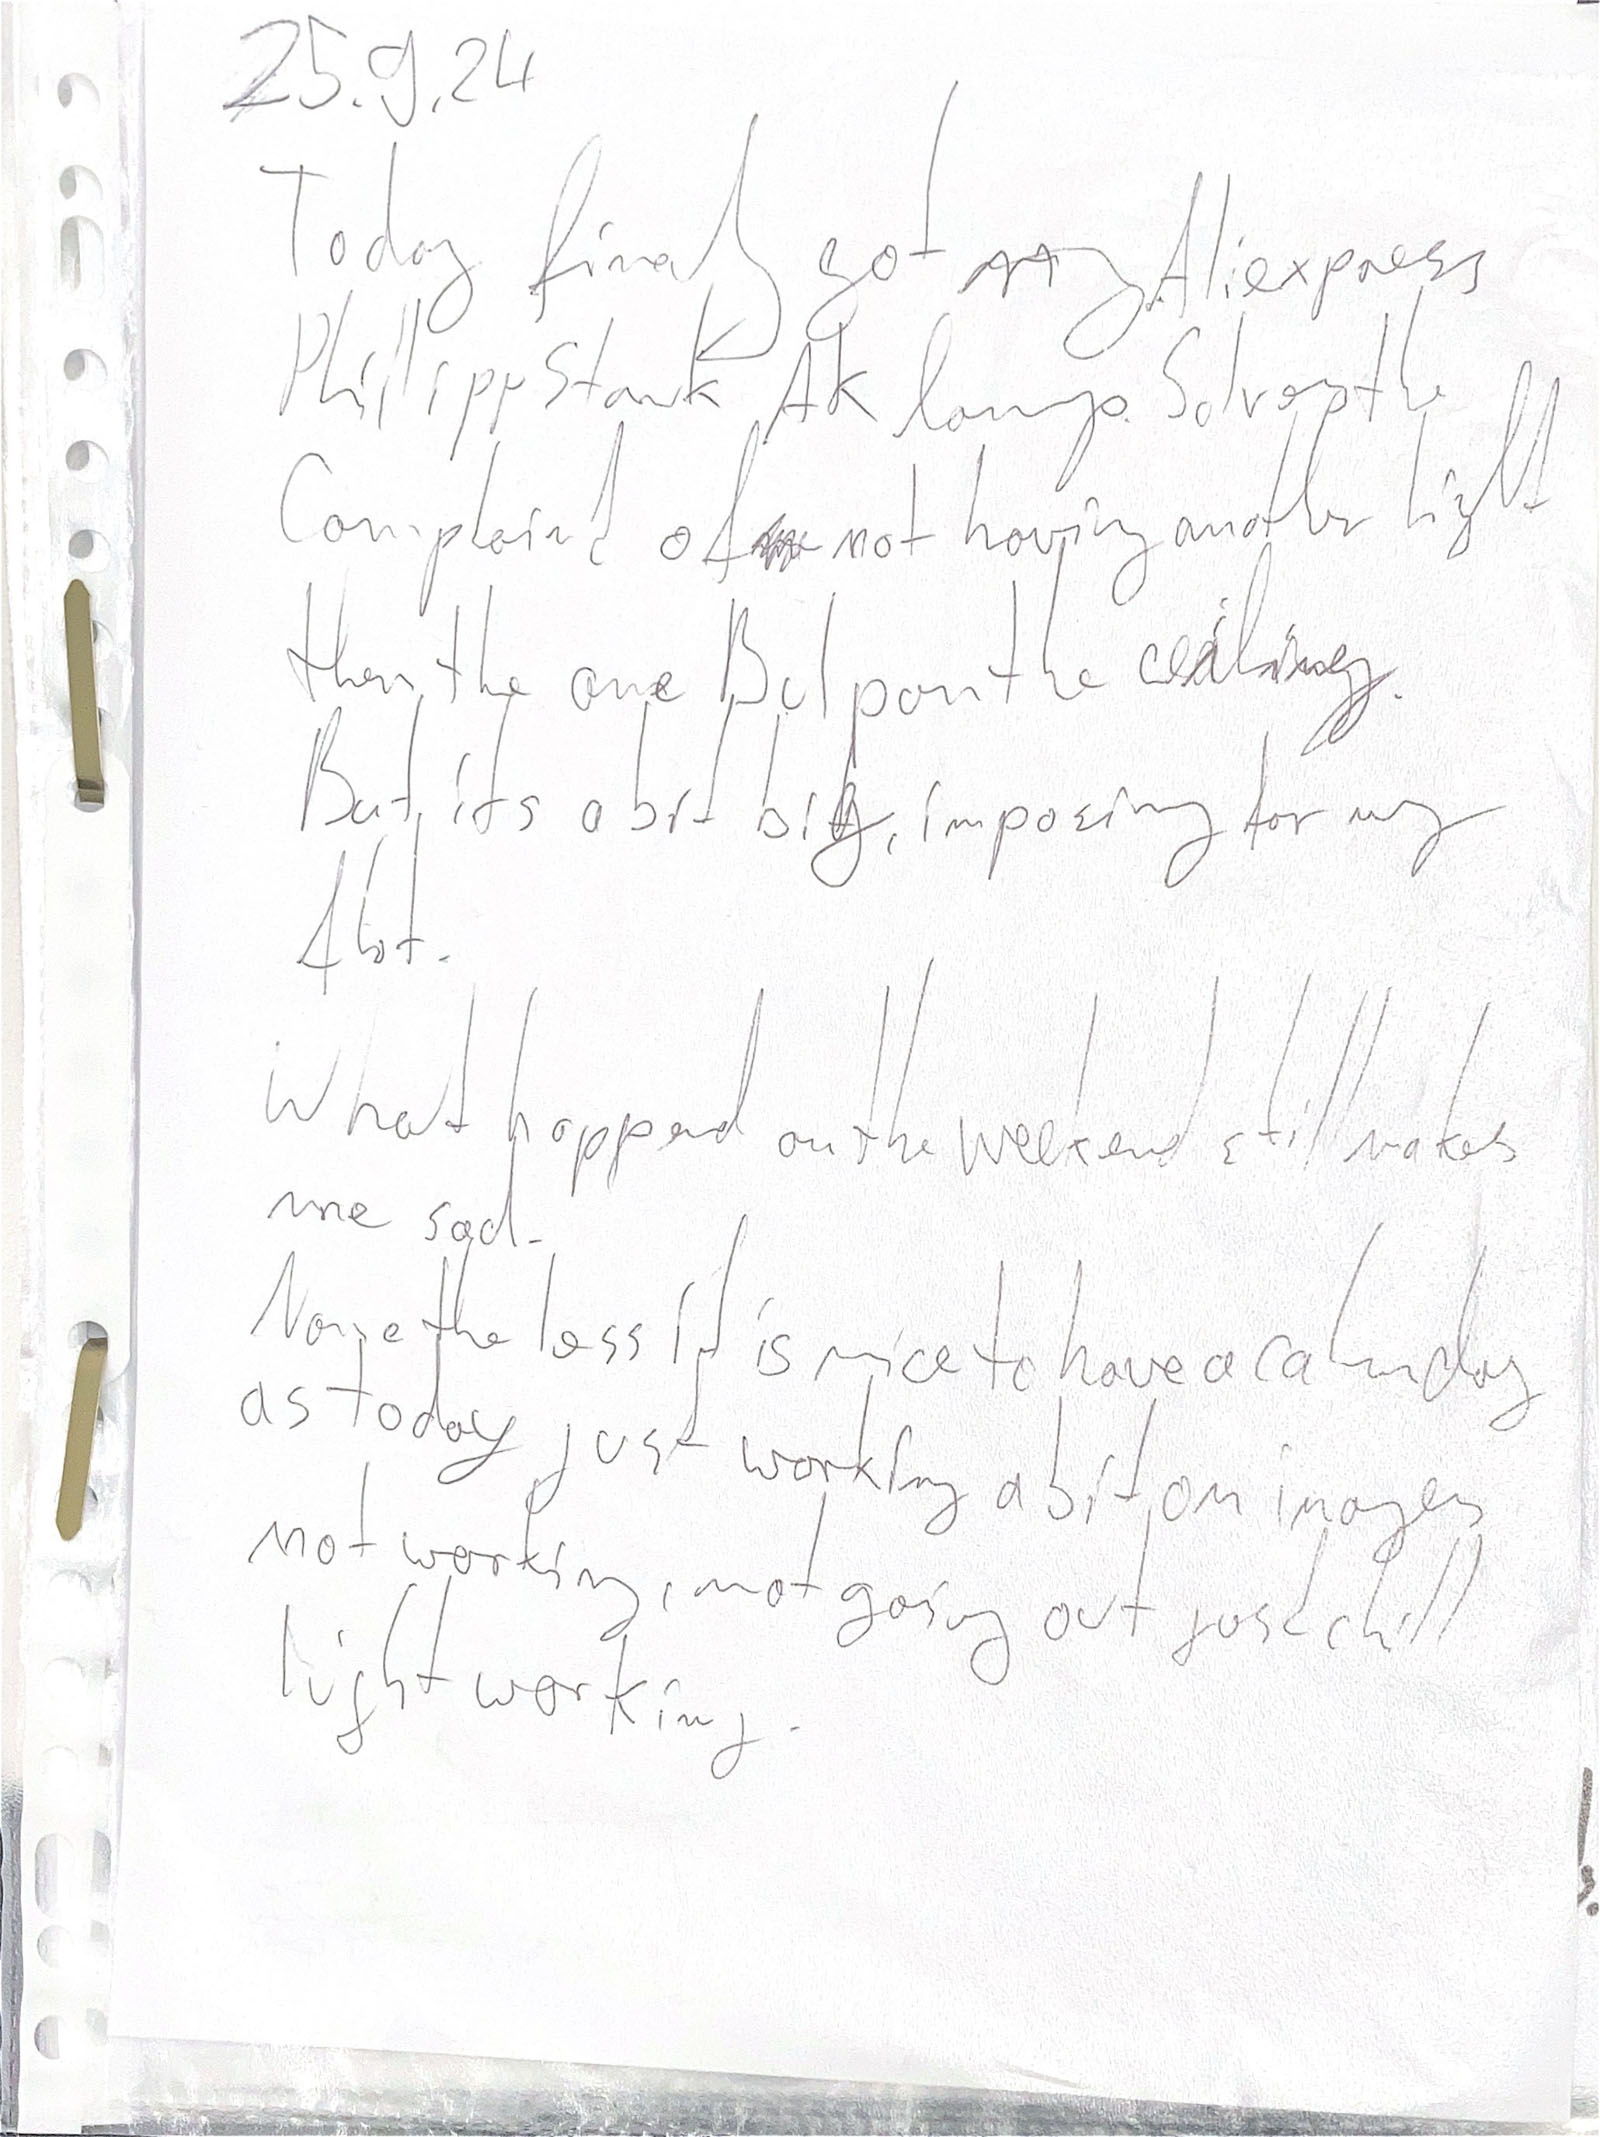 25.9.24
Today finaly got my Aliexpress
Phillipp Stark AK lamp. Solves the
Complaind of not having another light
then the one Bulp on the ceiling.
But its a bit big, imposing for my
flat.
What happend on the weekend still makes
me sad.
Nonetheless It is nice to have a calm day
as today just working a bit on images
not working, not going out just chill
light working.